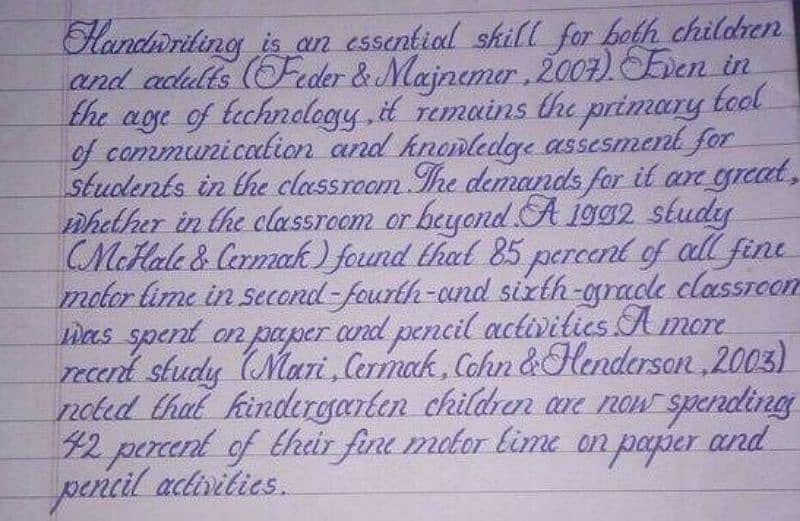 Handwriting is an essential skill for both children
and adults (Feder & Majnemer, 2007). Even in
the age of technology, it remains the primary tool
of communication and knowledge assesment for
students in the classroom. The demands for it are great,
whether in the classroom or beyond. A 1992 study
(McHale & Cermak) found that 85 percent of all fine
motor time in second-fourth-and sixth-grade classroom
was spent on paper and pencil activities. A more
recent study (Mari, Cermak, Cohn & Henderson, 2003)
noted that kindergarten children are now spending
42 percent of their fine motor time on paper and
pencil activities.